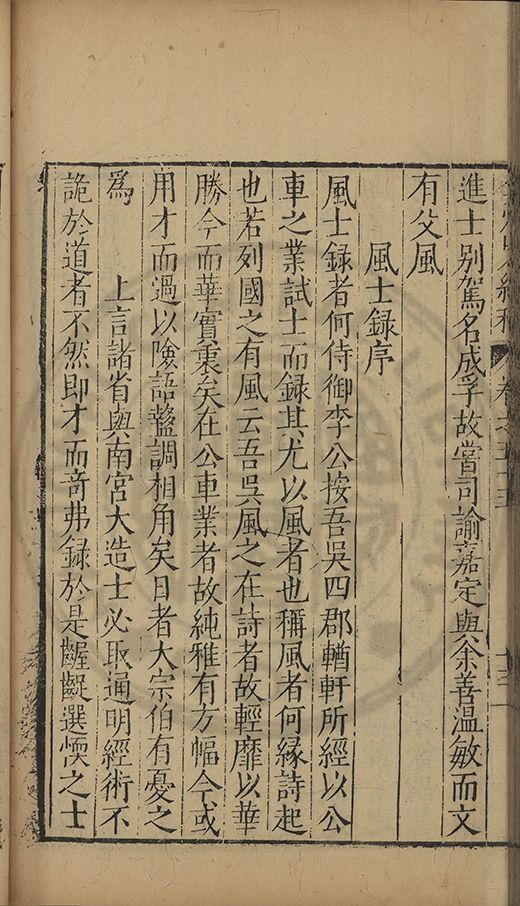 進士別駕名成孚故嘗司諭嘉定與余善溫敏而文
有父風
風士録序
風士録者何侍御李公按吾吳四郡輶軒所經以公
車之業試士而録其尤以風者也稱風者何緣詩起
也若列國之有風云吾吳風之在詩者故輕靡以華
勝今而華實裏矣在公車業者故純雅有方幅今或
用才而過以險語盩調相角矣日者大宗伯有憂之
為 上言諸省與南宮大造士必取通明經術不
詭於道者不然即才而竒弗録於是齷齪選愞之士